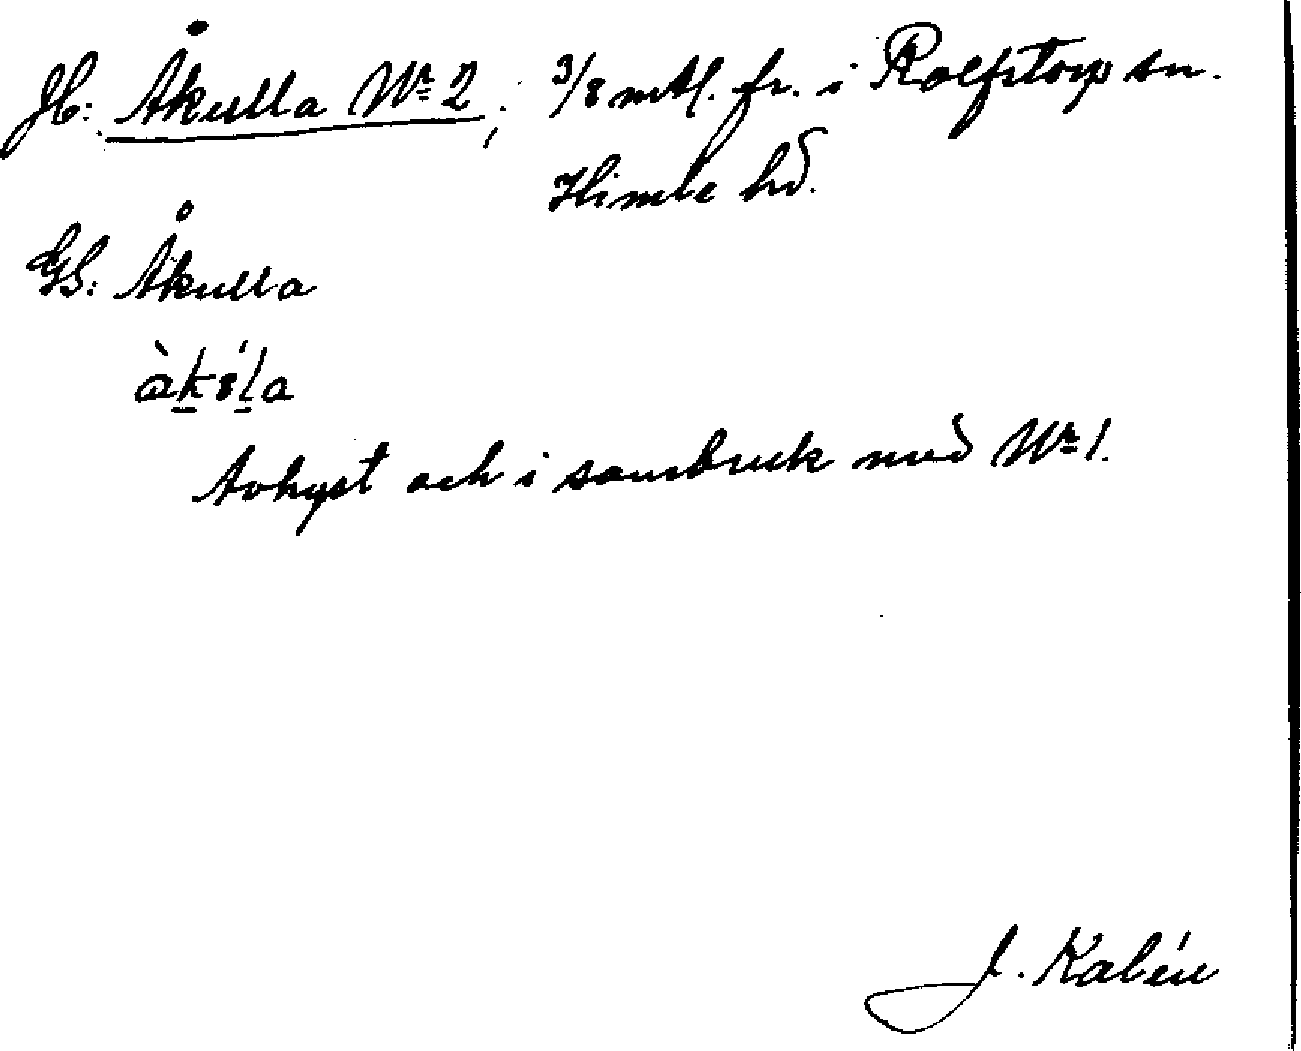 Jb: Åkulla Nr 2; 3/8 mtl. fr. i Rolfstorp sn.
Himle hd.
GS: Åkulla
Avhyst och i sambruk med Nr 1.
J. Kalén